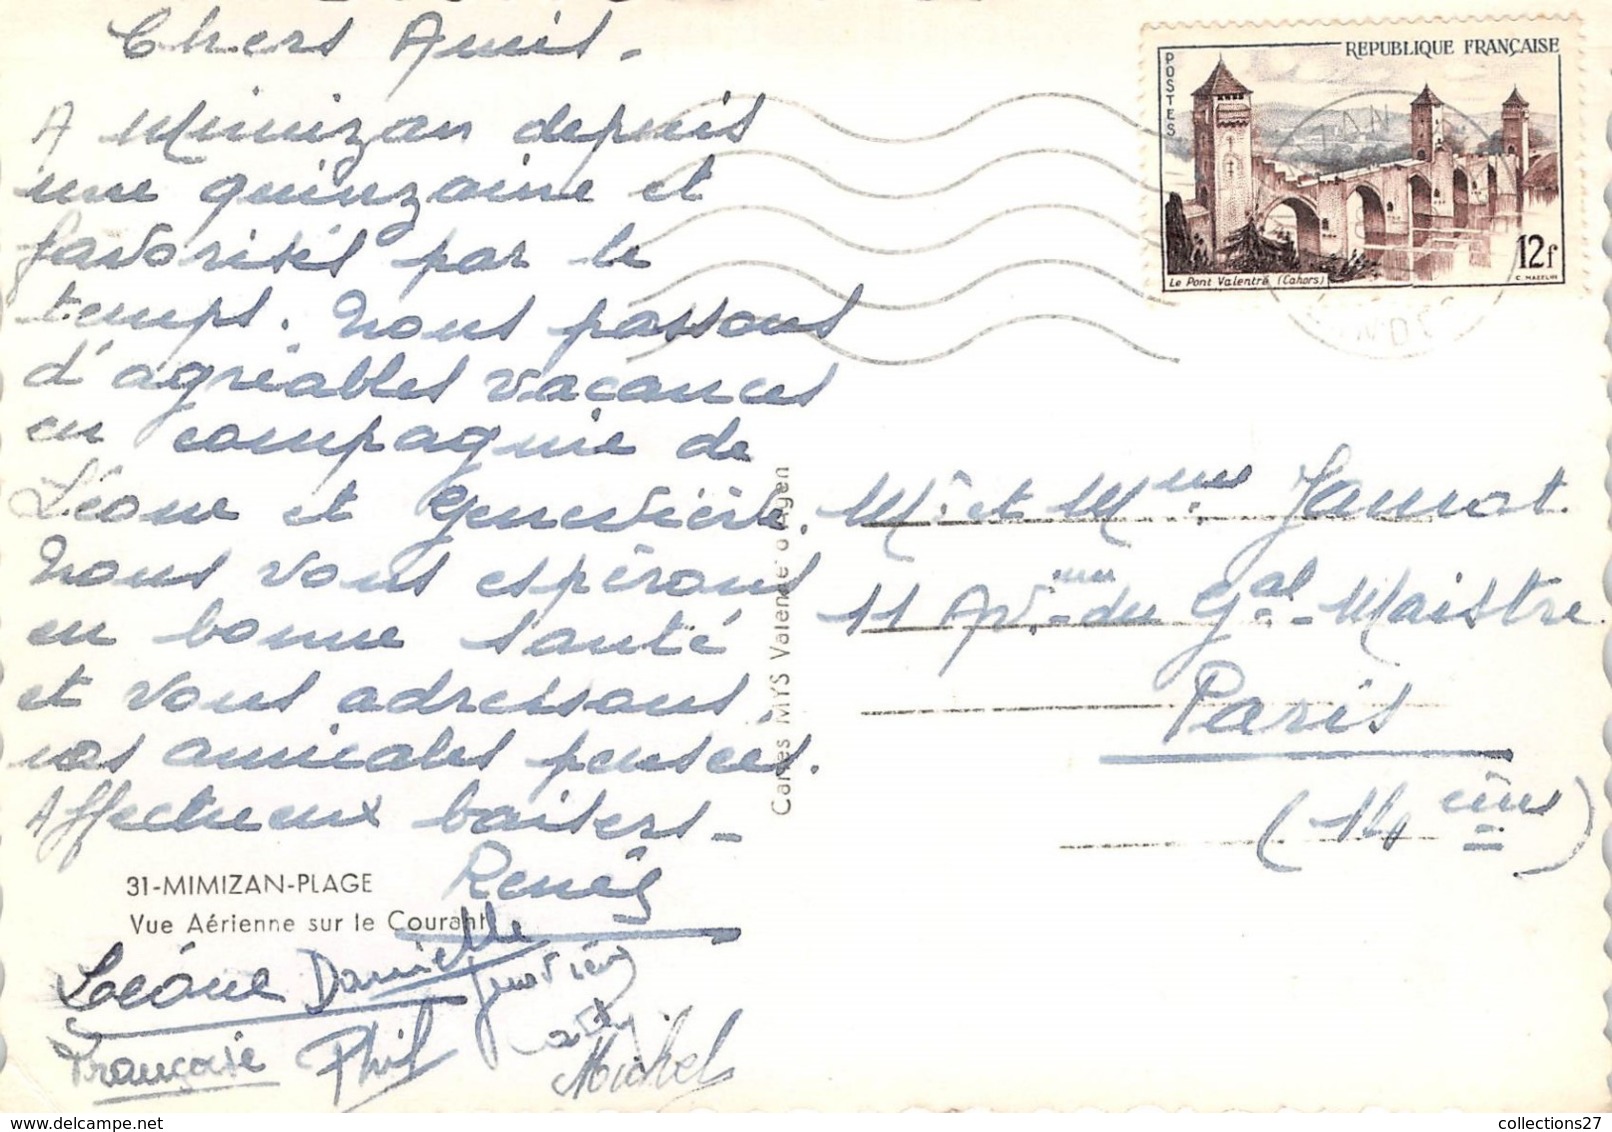 Chers Amis -
A Mimizan depuis
une quinzaine et
favorisés par le
temps. Nous passons
d'agréables vacances
en compagnie de
Léone et Geneviève.
Nous vous espérons
en bonne santé
et vous adressons
nos amicales pensées.
Affectueux baisers -
Renée
31-MIMIZAN-PLAGE
Vue Aérienne sur le Courant
Léone Danielle
Françoise Phil
Michel
Cartes MYS Valence d'Agen
POSTES
REPUBLIQUE FRANÇAISE
12f
Le Pont Valentré (Cahors)
C. MAZELIN
Mr et Mme Jamot
11 Av. du Gal Maistre
Paris
(14 ème)
collections27